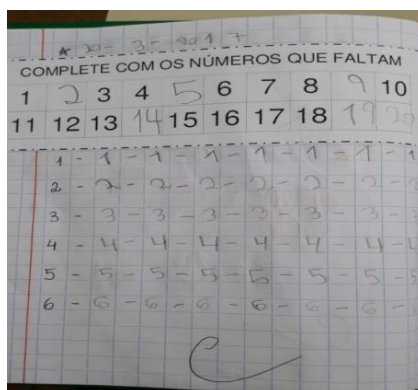 * 20 - 3 - 2017
COMPLETE COM OS NÚMEROS QUE FALTAM
1 2 3 4 5 6 7 8 9 10
11 12 13 14 15 16 17 18 19 20
1 - 1 - 1 - 1 - 1 - 1 - 1 - 1
2 - 2 - 2 - 2 - 2 - 2 - 2 - 2
3 - 3 - 3 - 3 - 3 - 3 - 3 -
4 - 4 - 4 - 4 - 4 - 4 - 4 - 4
5 - 5 - 5 - 5 - 5 - 5 - 5 - 5
6 - 6 - 6 - 6 - 6 - 6 - 6 -